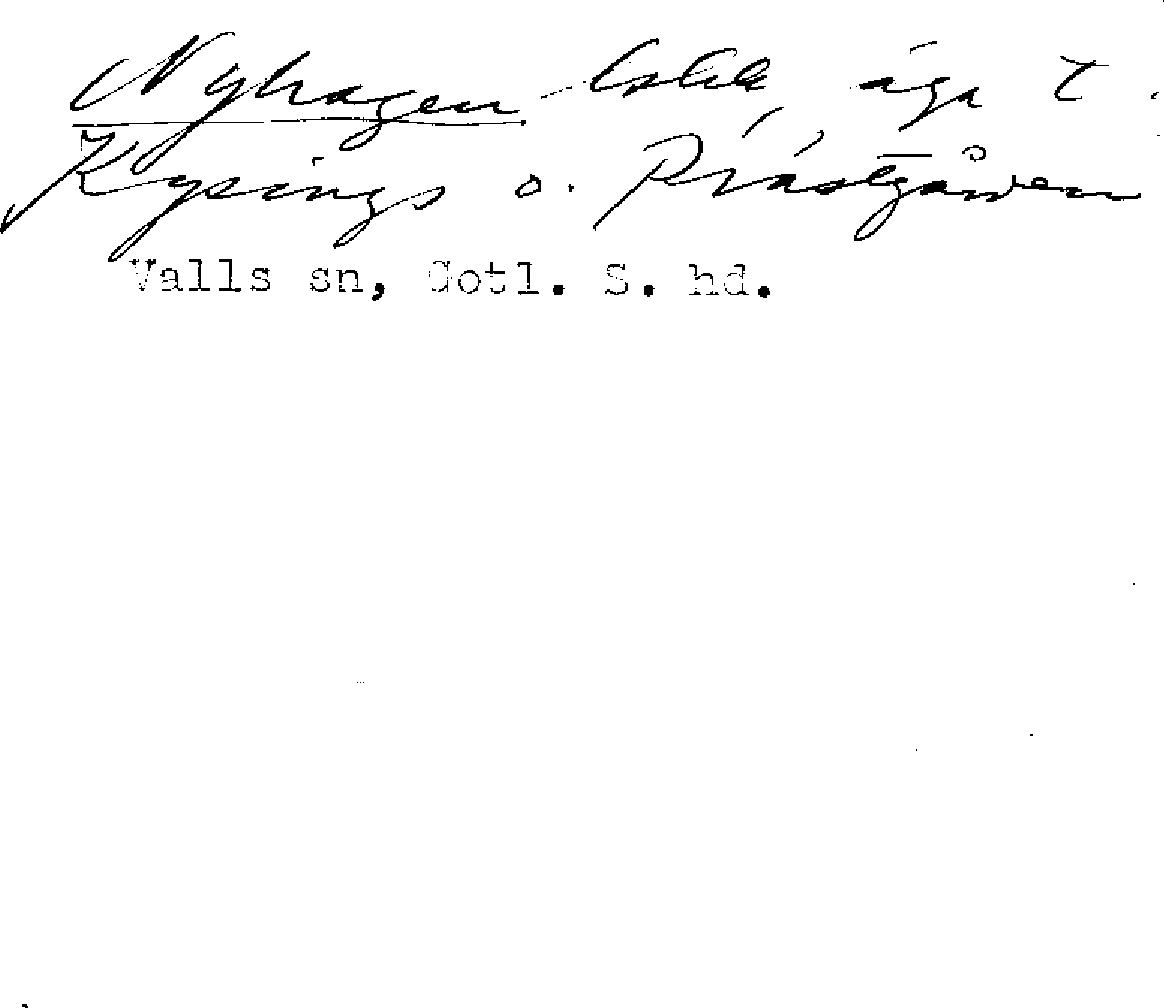 Nyhagen äga t.
Kysings o. Prästgården
Valls sn, Gotl. S. hd.